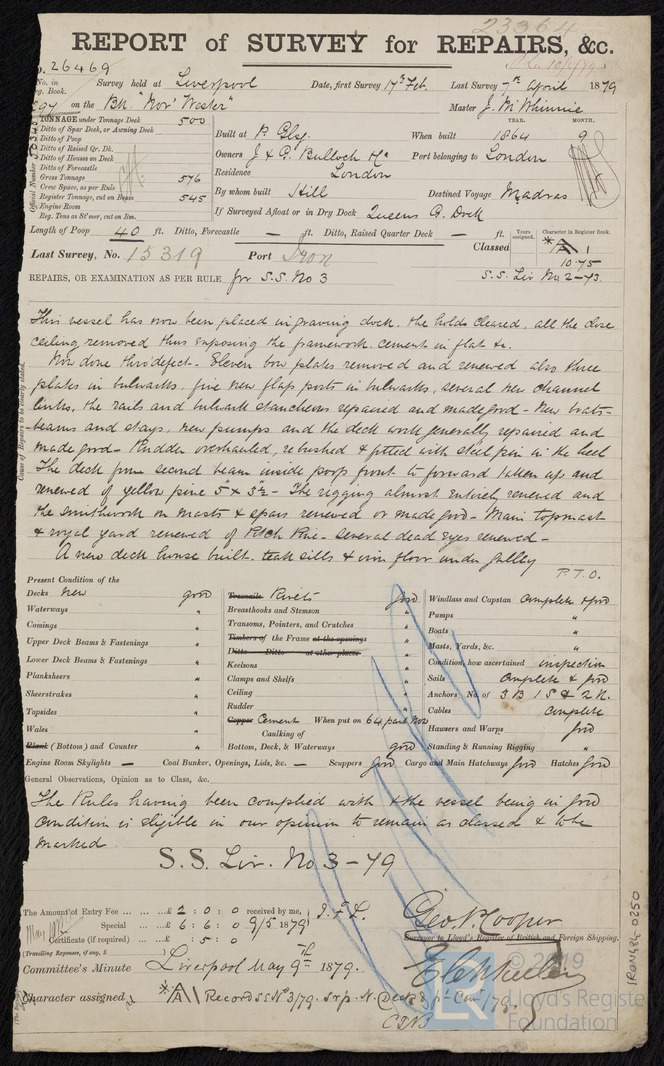 23364
REPORT of SURVEY for REPAIRS, &c.
26469
No. in Reg. Book. Survey held at Liverpool Date, first Survey 17th Feb. Last Survey 7th April 1879
on the Bk. "Nor' Wester" Master J. McWhinnie
TONNAGE under Tonnage Deck 500
Ditto of Spar Deck, or Awning Deck
Ditto of Poop
Ditto of Raised Qr. Dk.
Ditto of Houses on Deck
Ditto of Forecastle
Gross Tonnage 576
Crew Space, as per Rule
Register Tonnage, cut on Beam 545
Engine Room
Reg. Tons as St'mer, cut on Bm.
Official Number
Built at P. Glsg. When built 1864 9
YEAR. MONTH.
Owners J & G. Bulloch & Co Port belonging to London
Residence London
By whom built Hill Destined Voyage Madras
If Surveyed Afloat or in Dry Dock Queens G. Dock
Length of Poop 40 ft. Ditto, Forecastle — ft. Ditto, Raised Quarter Deck — ft.
Years assigned. Character in Register Book.
Classed *A 1
10.75
Last Survey, No. 15319 Port Iron
S.S. Liv No 2-73
REPAIRS, OR EXAMINATION AS PER RULE for S.S. No 3
Cause of Repairs to be clearly stated.
This vessel has now been placed in graving dock, the holds cleared, all the close
ceiling removed thus exposing the framework, cement in flat &c.
Now done thro' defect. Eleven bow plates removed and renewed also three
plates in bulwarks, five new flap ports in bulwarks, several new channel
links, the rails and bulwark stancheons repaired and made good - New boats-
beams and stays, new pumps and the deck work generally repaired and
made good - Rudder overhauled, rebushed & fitted with steel pin in the heel
The deck from second beam inside poop front to forward taken up and
renewed of yellow pine 5" x 3½ - The rigging almost entirely renewed and
the smithwork on masts & spars renewed or made good - Main topmast
& royal yard renewed of Pitch Pine - Several dead eyes renewed -
A new deck house built, teak sills & iron floor under galley
P.T.O.
Present Condition of the
Decks New good
Waterways "
Comings "
Upper Deck Beams & Fastenings "
Lower Deck Beams & Fastenings "
Planksheers "
Sheerstrakes "
Topsides "
Wales "
Plank (Bottom) and Counter "
Treenails Rivets good
Breasthooks and Stemson "
Transoms, Pointers, and Crutches "
Timbers of the Frame at the openings "
Ditto Ditto at other places "
Keelsons "
Clamps and Shelfs "
Ceiling "
Rudder "
Copper Cement When put on 64 part Now
Caulking of
Bottom, Deck, & Waterways good
Windlass and Capstan complete & good
Pumps "
Boats "
Masts, Yards, &c. "
Condition, how ascertained inspection
Sails complete & good
Anchors No. of 3 B 1 S & 2 K.
Cables complete
Hawsers and Warps good
Standing & Running Rigging "
Engine Room Skylights — Coal Bunker, Openings, Lids, &c. — Scuppers good Cargo and Main Hatchways good Hatches good
General Observations, Opinion as to Class, &c.
The Rules having been complied with & the vessel being in good
condition is eligible in our opinion to remain as classed & to be
marked
S.S. Liv. No 3-79
The Amount of Entry Fee ... £ 2 : 0 : 0 received by me, J.F.L.
Special ... £ 6 : 6 : 0 9/5 1879
Certificate (if required) .. £ : 5 : 0
(Travelling Expenses, if any, £ )
Geo. N. Cooper
Surveyor to Lloyd's Register of British and Foreign Shipping.
Committee's Minute Liverpool May 9th 1879.
Character assigned *A1 Record SS No 3/79.
IRON484-0250
© 2019
LR Lloyd's Register
Foundation